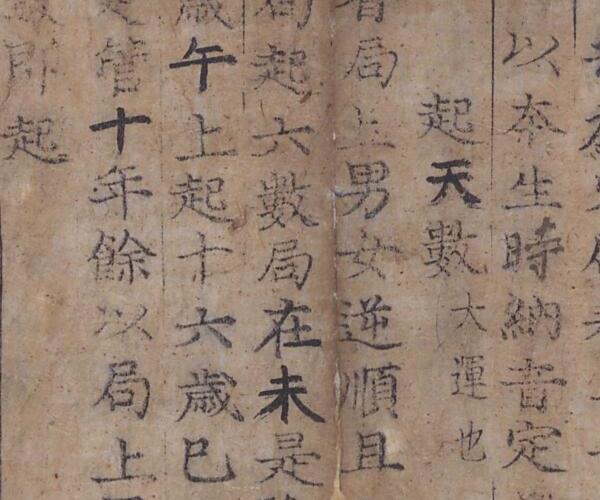 以本生時納音定
起天數大運也
局上男女逆順且
局起六數局在未是
午上起十六歲巳
管十年餘以局上
即起